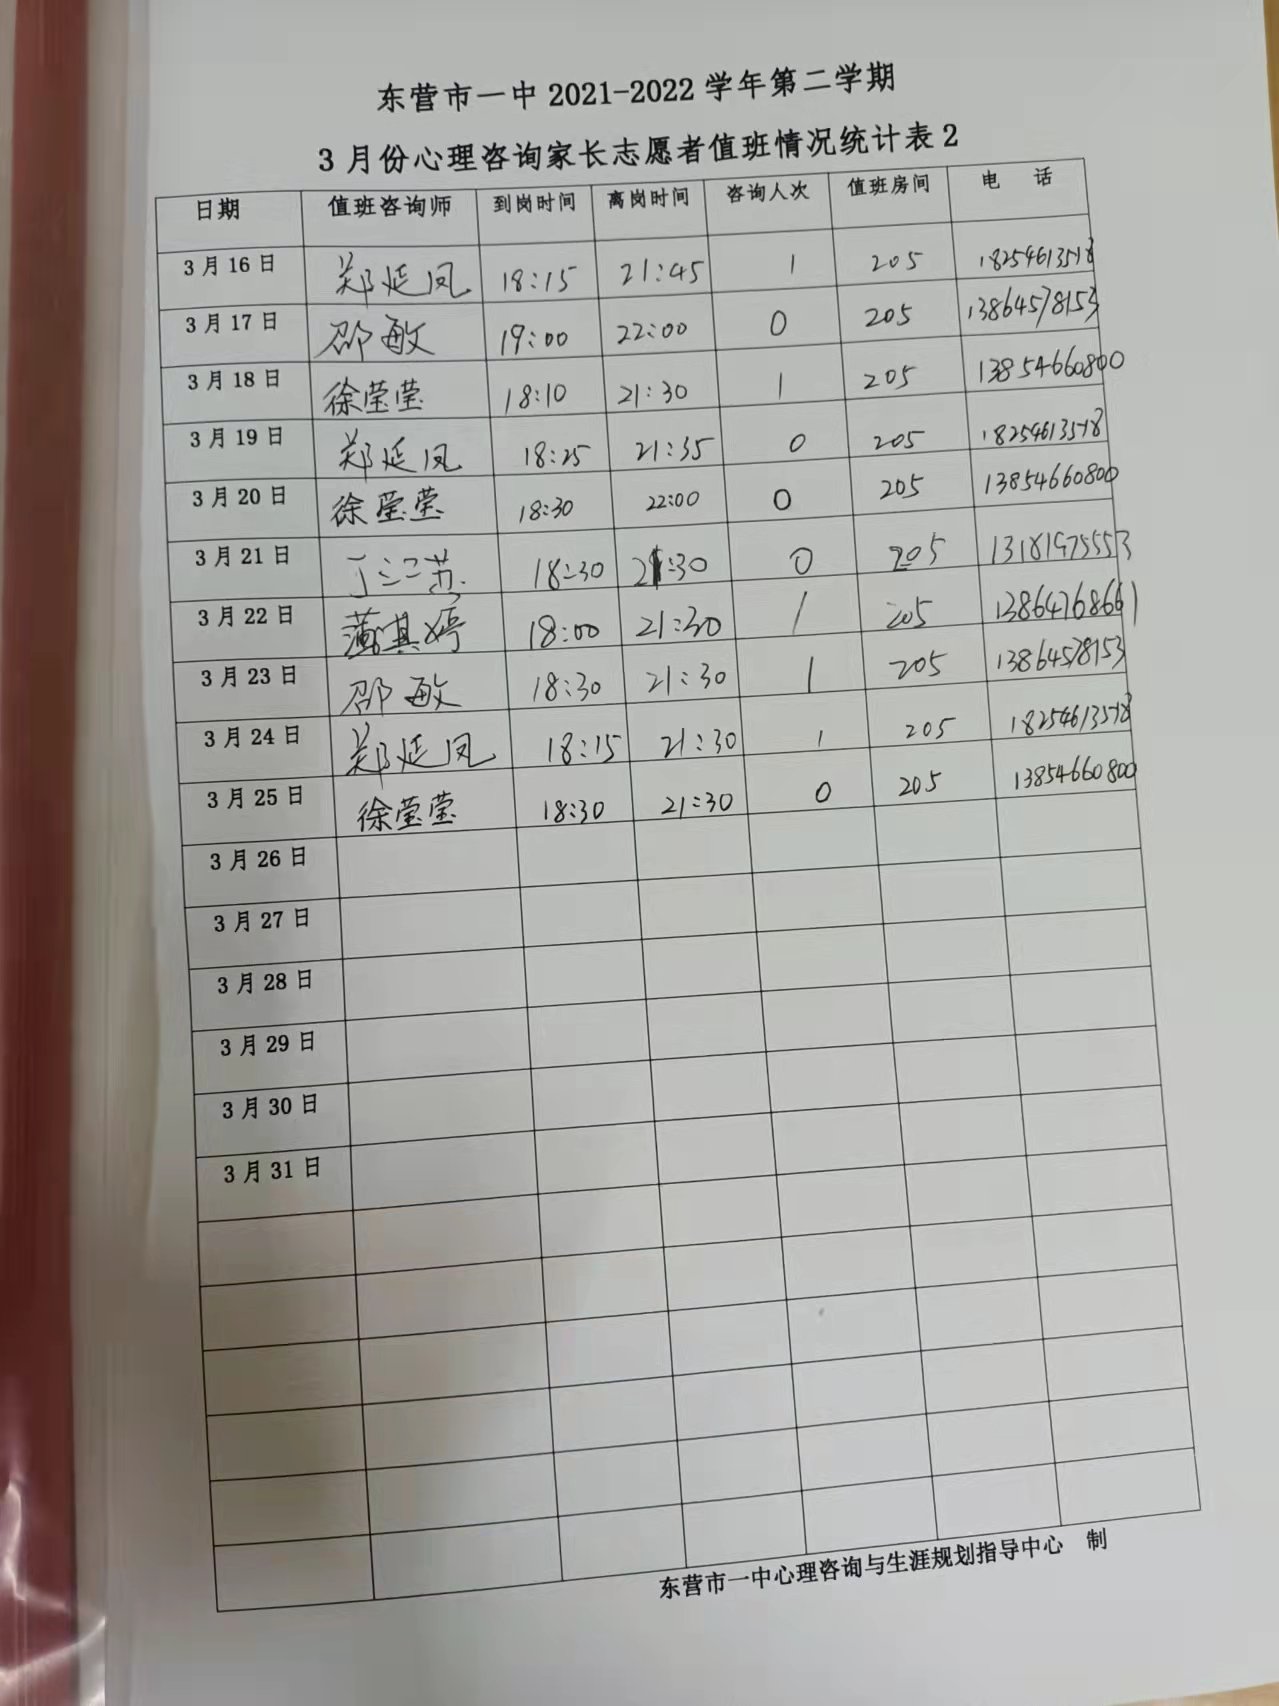 东营市一中 2021-2022 学年第二学期
3 月份心理咨询家长志愿者值班情况统计表 2
日期 值班咨询师 到岗时间 离岗时间 咨询人次 值班房间 电 话
3 月 16 日 郑延凤 18:15 21:45 1 205 18254613518
3 月 17 日 邵敏 19:00 22:00 0 205 13864578153
3 月 18 日 徐莹莹 18:10 21:30 1 205 13854660800
3 月 19 日 郑延凤 18:25 21:35 0 205 18254613518
3 月 20 日 徐莹莹 18:30 22:00 0 205 13854660800
3 月 21 日 18:30 21:30 0 205 13181975553
3 月 22 日 薄其婷 18:00 21:30 1 205 13864768661
3 月 23 日 邵敏 18:30 21:30 1 205 13864578153
3 月 24 日 郑延凤 18:15 21:30 1 205 18254613518
3 月 25 日 徐莹莹 18:30 21:30 0 205 13854660800
3 月 26 日
3 月 27 日
3 月 28 日
3 月 29 日
3 月 30 日
3 月 31 日
东营市一中心理咨询与生涯规划指导中心 制